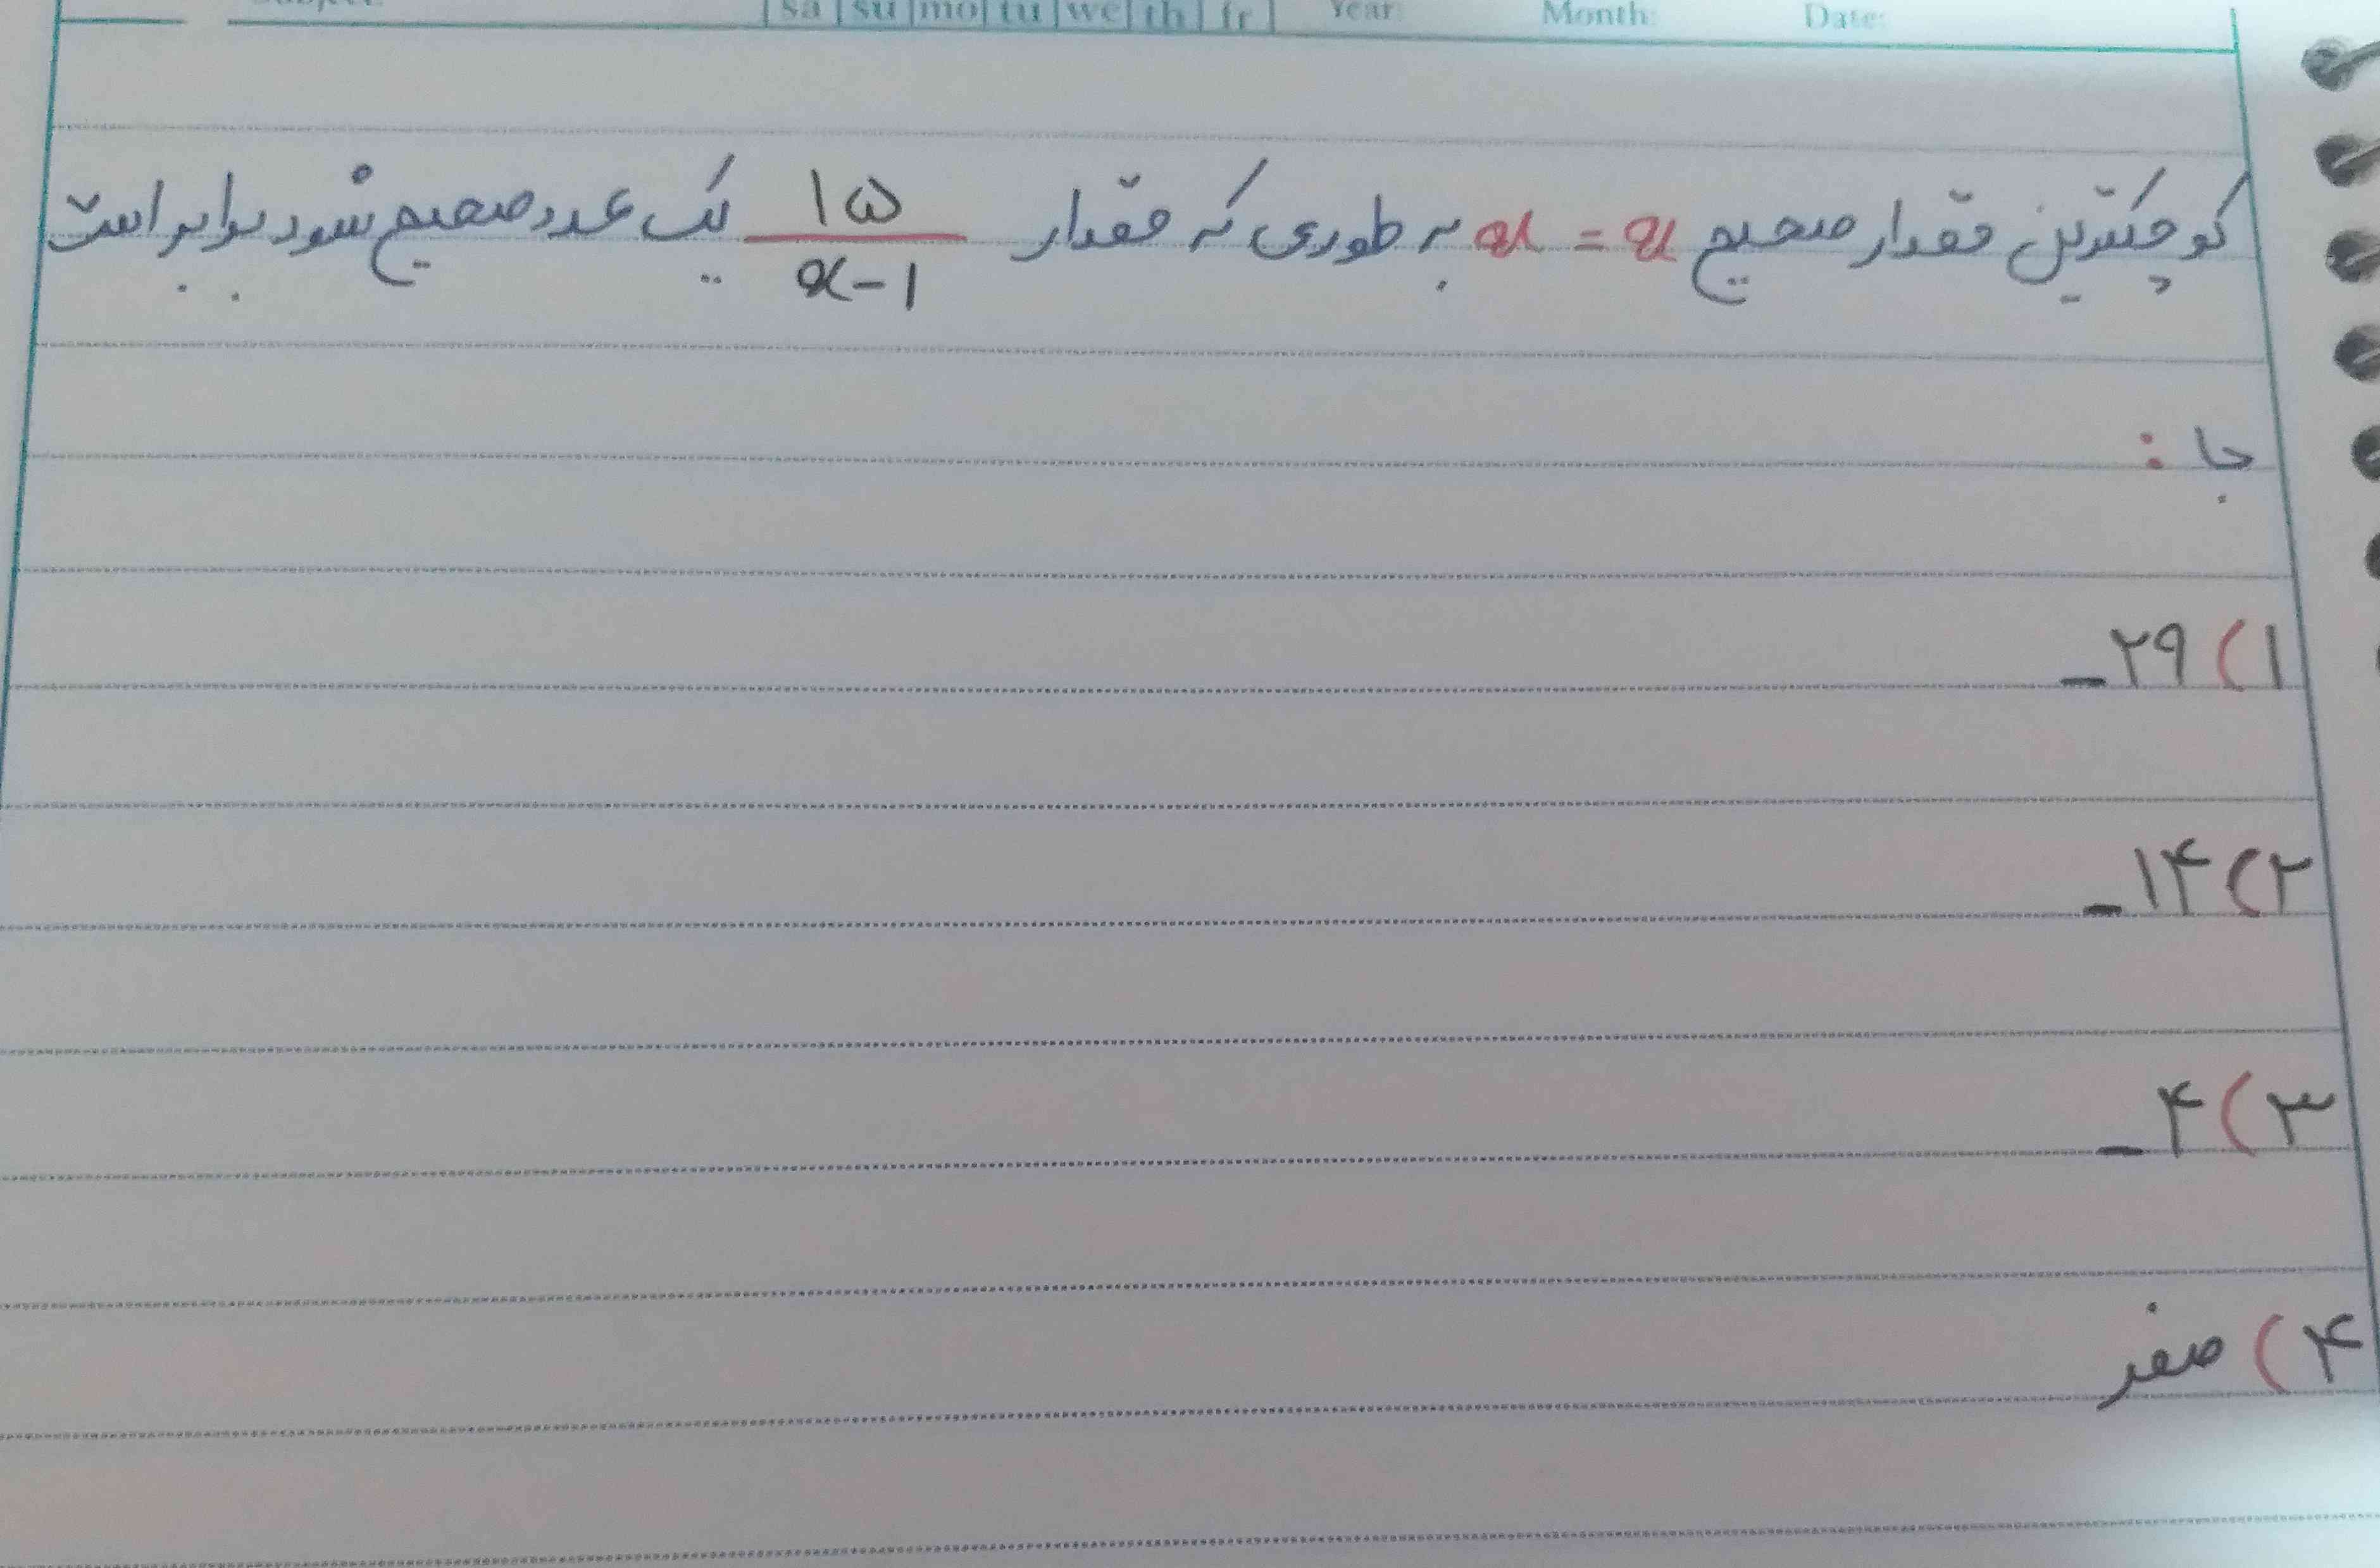 sa su mo tu we th fr Year: Month: Date:
کوچکترین مقدار صحیح x = x به طوری که مقدار ۱۵/x-۱ یک عدد صحیح شود برابر است
جا :
۱) ۲۹-
۲) ۱۴-
۳) ۴-
۴) صفر